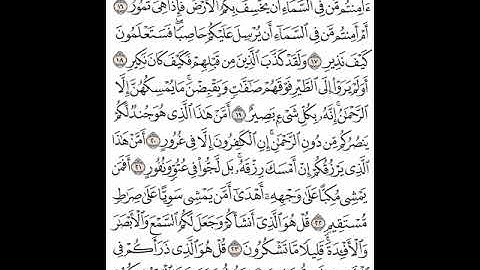 ءَأَمِنتُم مَّن فِي ٱلسَّمَآءِ أَن يَخۡسِفَ بِكُمُ ٱلۡأَرۡضَ فَإِذَا هِيَ تَمُورُ ١٦
أَمۡ أَمِنتُم مَّن فِي ٱلسَّمَآءِ أَن يُرۡسِلَ عَلَيۡكُمۡ حَاصِبٗاۖ فَسَتَعۡلَمُونَ
كَيۡفَ نَذِيرِ ١٧ وَلَقَدۡ كَذَّبَ ٱلَّذِينَ مِن قَبۡلِهِمۡ فَكَيۡفَ كَانَ نَكِيرِ ١٨
أَوَلَمۡ يَرَوۡاْ إِلَى ٱلطَّيۡرِ فَوۡقَهُمۡ صَٰٓفَّٰتٖ وَيَقۡبِضۡنَۚ مَا يُمۡسِكُهُنَّ إِلَّا
ٱلرَّحۡمَٰنُۚ إِنَّهُۥ بِكُلِّ شَيۡءِۭ بَصِيرٌ ١٩ أَمَّنۡ هَٰذَا ٱلَّذِي هُوَ جُندٞ لَّكُمۡ
يَنصُرُكُم مِّن دُونِ ٱلرَّحۡمَٰنِۚ إِنِ ٱلۡكَٰفِرُونَ إِلَّا فِي غُرُورٍ ٢٠ أَمَّنۡ هَٰذَا
ٱلَّذِي يَرۡزُقُكُمۡ إِنۡ أَمۡسَكَ رِزۡقَهُۥۚ بَل لَّجُّواْ فِي عُتُوّٖ وَنُفُورٍ ٢١ أَفَمَن
يَمۡشِي مُكِبًّا عَلَىٰ وَجۡهِهِۦٓ أَهۡدَىٰٓ أَمَّن يَمۡشِي سَوِيًّا عَلَىٰ صِرَٰطٖ
مُّسۡتَقِيمٖ ٢٢ قُلۡ هُوَ ٱلَّذِيٓ أَنشَأَكُمۡ وَجَعَلَ لَكُمُ ٱلسَّمۡعَ وَٱلۡأَبۡصَٰرَ
وَٱلۡأَفۡـِٔدَةَۚ قَلِيلٗا مَّا تَشۡكُرُونَ ٢٣ قُلۡ هُوَ ٱلَّذِي ذَرَأَكُمۡ فِي